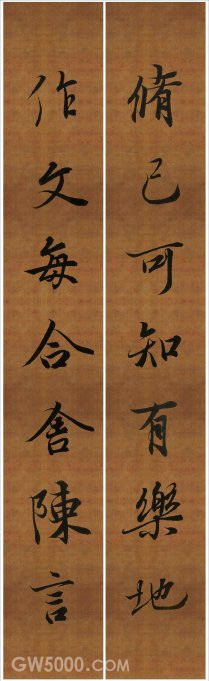 脩己可知有樂地
作文每合舍陳言
GW5000.COM